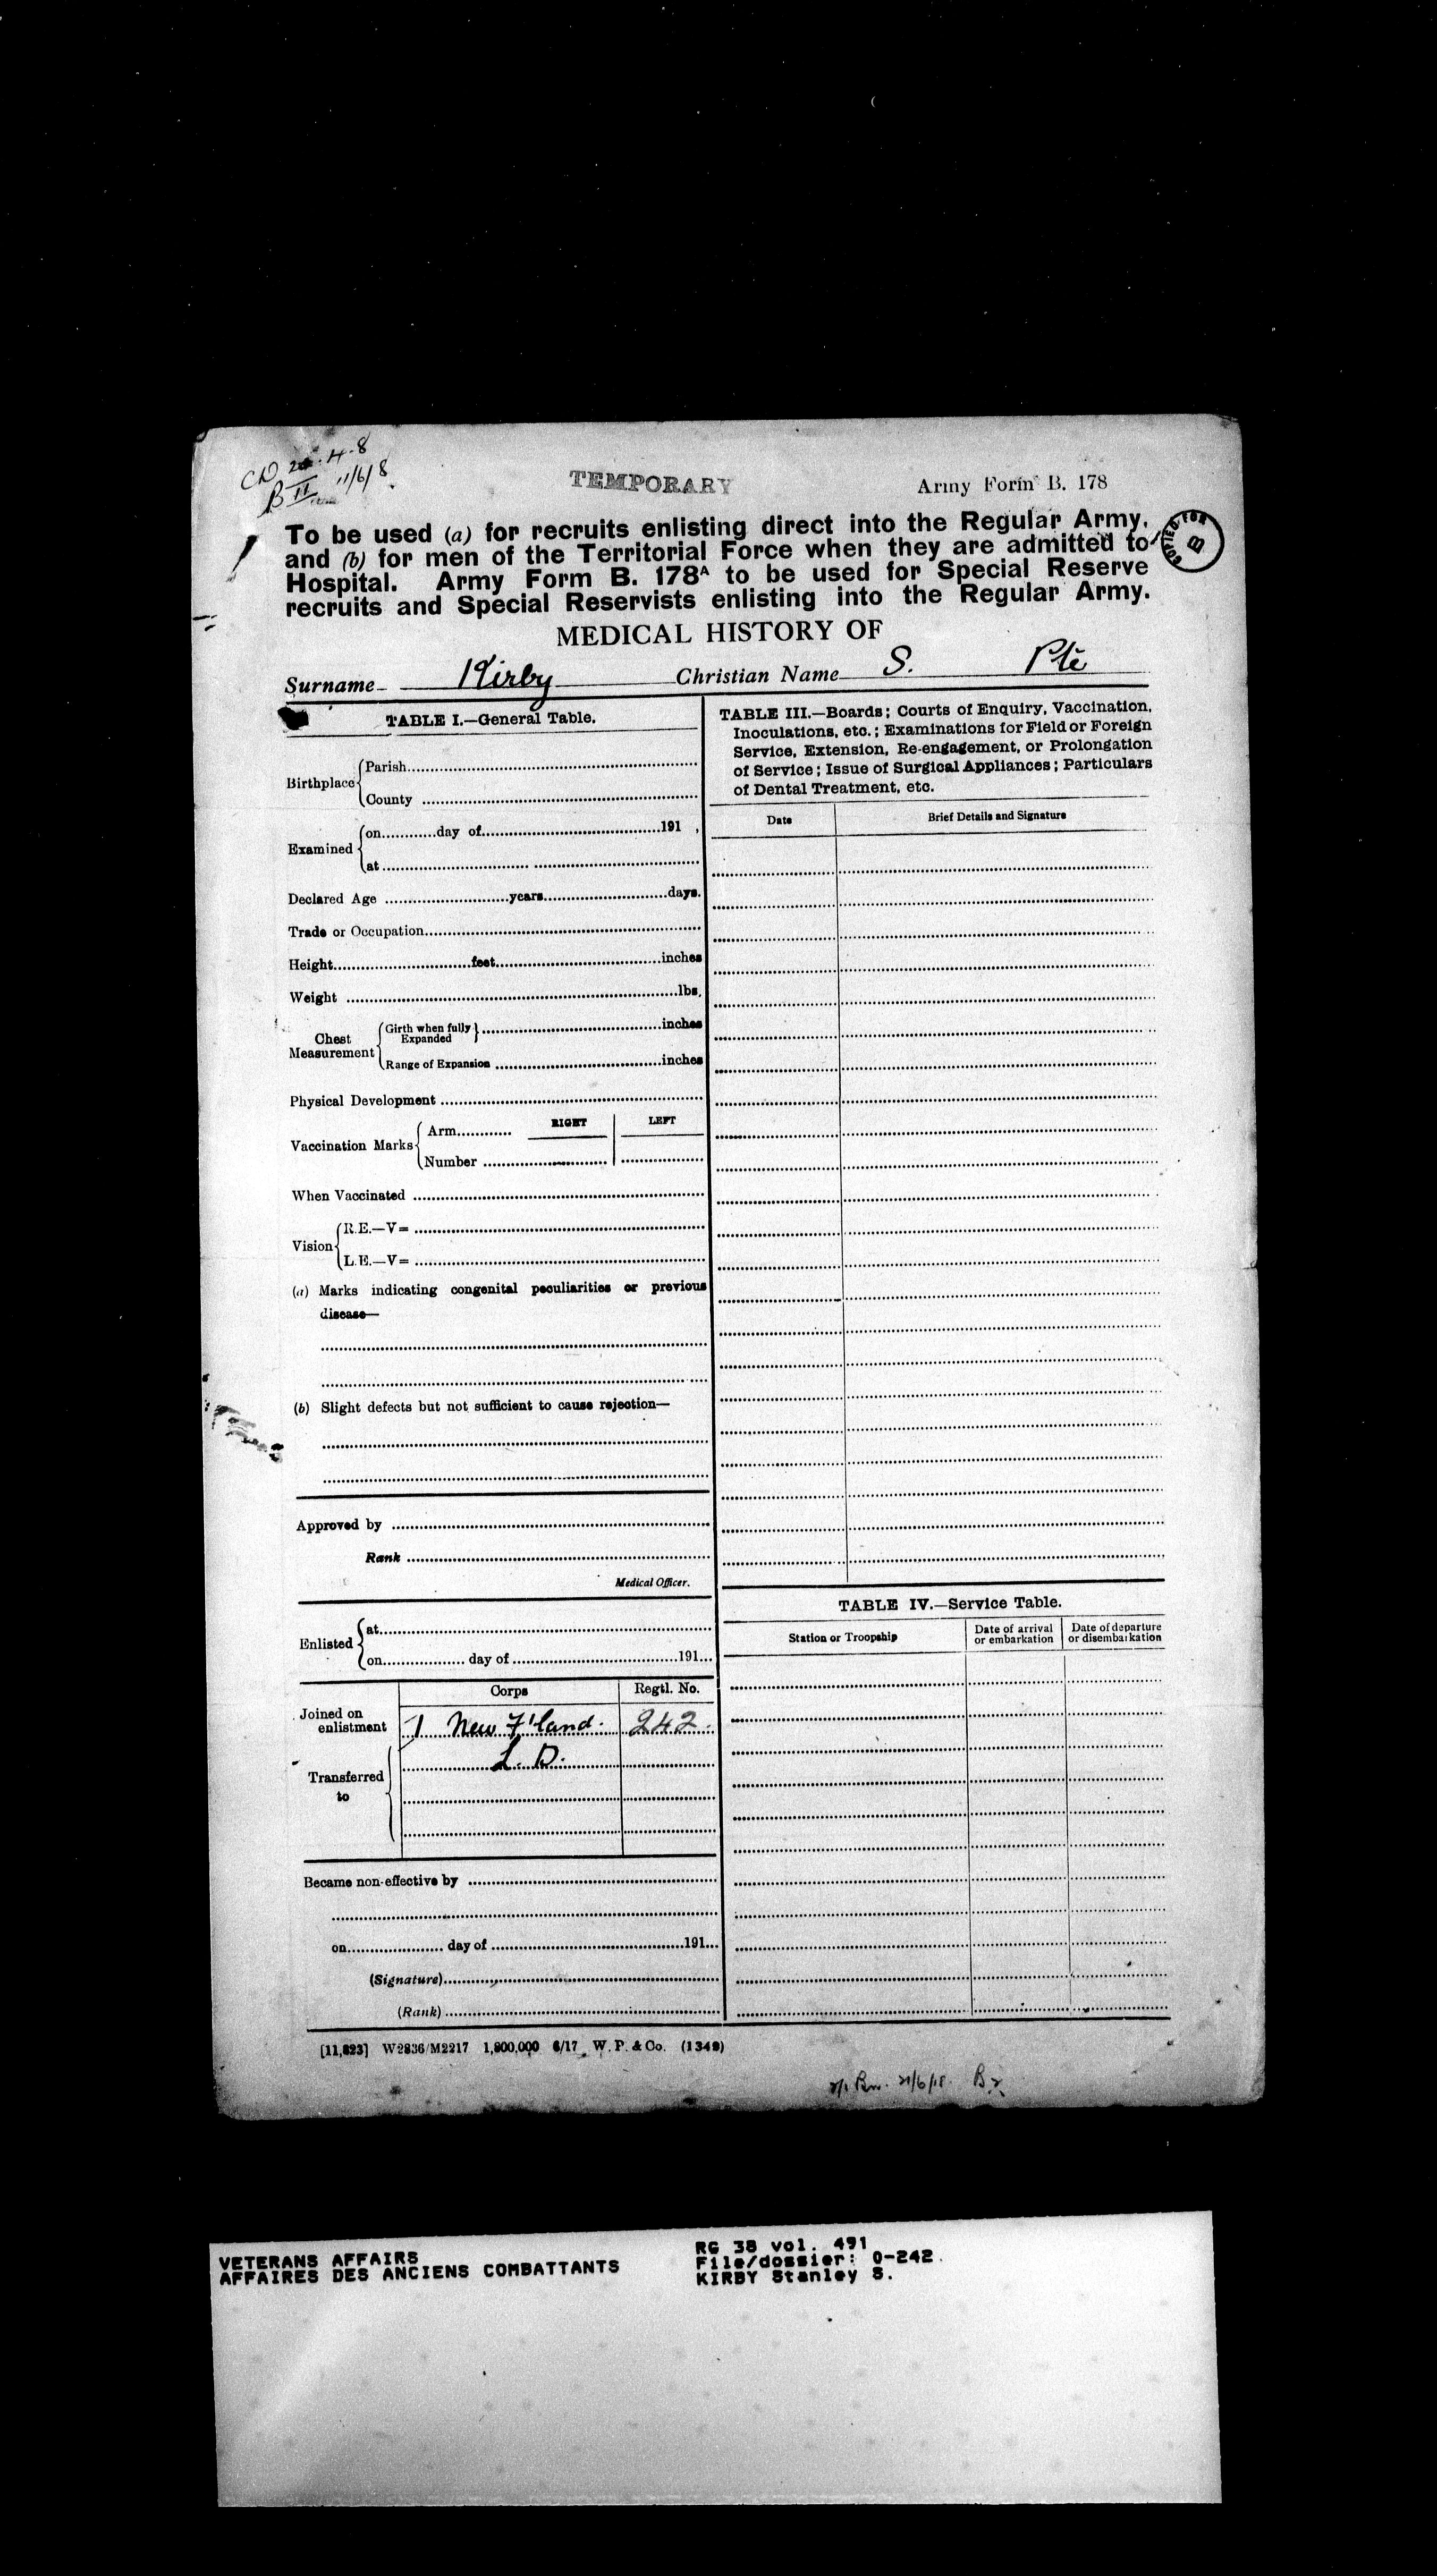 CD 24.4.8
B II 11/6/8
TEMPORARY
Army Form B. 178
COPIED FOR B
To be used (a) for recruits enlisting direct into the Regular Army,
and (b) for men of the Territorial Force when they are admitted to
Hospital. Army Form B. 178A to be used for Special Reserve
recruits and Special Reservists enlisting into the Regular Army.
MEDICAL HISTORY OF
Surname Kirby Christian Name S. Pte
TABLE I.—General Table.
Birthplace
Parish
County
Examined
on day of 191
at
Declared Age years days.
Trade or Occupation
Height feet inches
Weight lbs.
Chest Measurement
Girth when fully Expanded inches
Range of Expansion inches
Physical Development
RIGHT LEFT
Vaccination Marks
Arm
Number
When Vaccinated
Vision
R.E.—V=
L.E.—V=
(a) Marks indicating congenital peculiarities or previous
disease—
(b) Slight defects but not sufficient to cause rejection—
Approved by
Rank
Medical Officer.
Enlisted
at
on day of 191
Corps Regtl. No.
Joined on
enlistment
1 New F'land. 242.
L. D.
Transferred
to
Became non-effective by
on day of 191
(Signature)
(Rank)
TABLE III.—Boards; Courts of Enquiry, Vaccination,
Inoculations, etc.; Examinations for Field or Foreign
Service, Extension, Re-engagement, or Prolongation
of Service; Issue of Surgical Appliances; Particulars
of Dental Treatment, etc.
Date Brief Details and Signature
TABLE IV.—Service Table.
Station or Troopship
Date of arrival
or embarkation
Date of departure
or disembarkation
[11,823] W2836/M2217 1,800,000 6/17 W. P. & Co. (1349)
21/6/18
VETERANS AFFAIRS
AFFAIRES DES ANCIENS COMBATTANTS
RG 38 vol. 491
File/dossier: 0-242
KIRBY Stanley S.